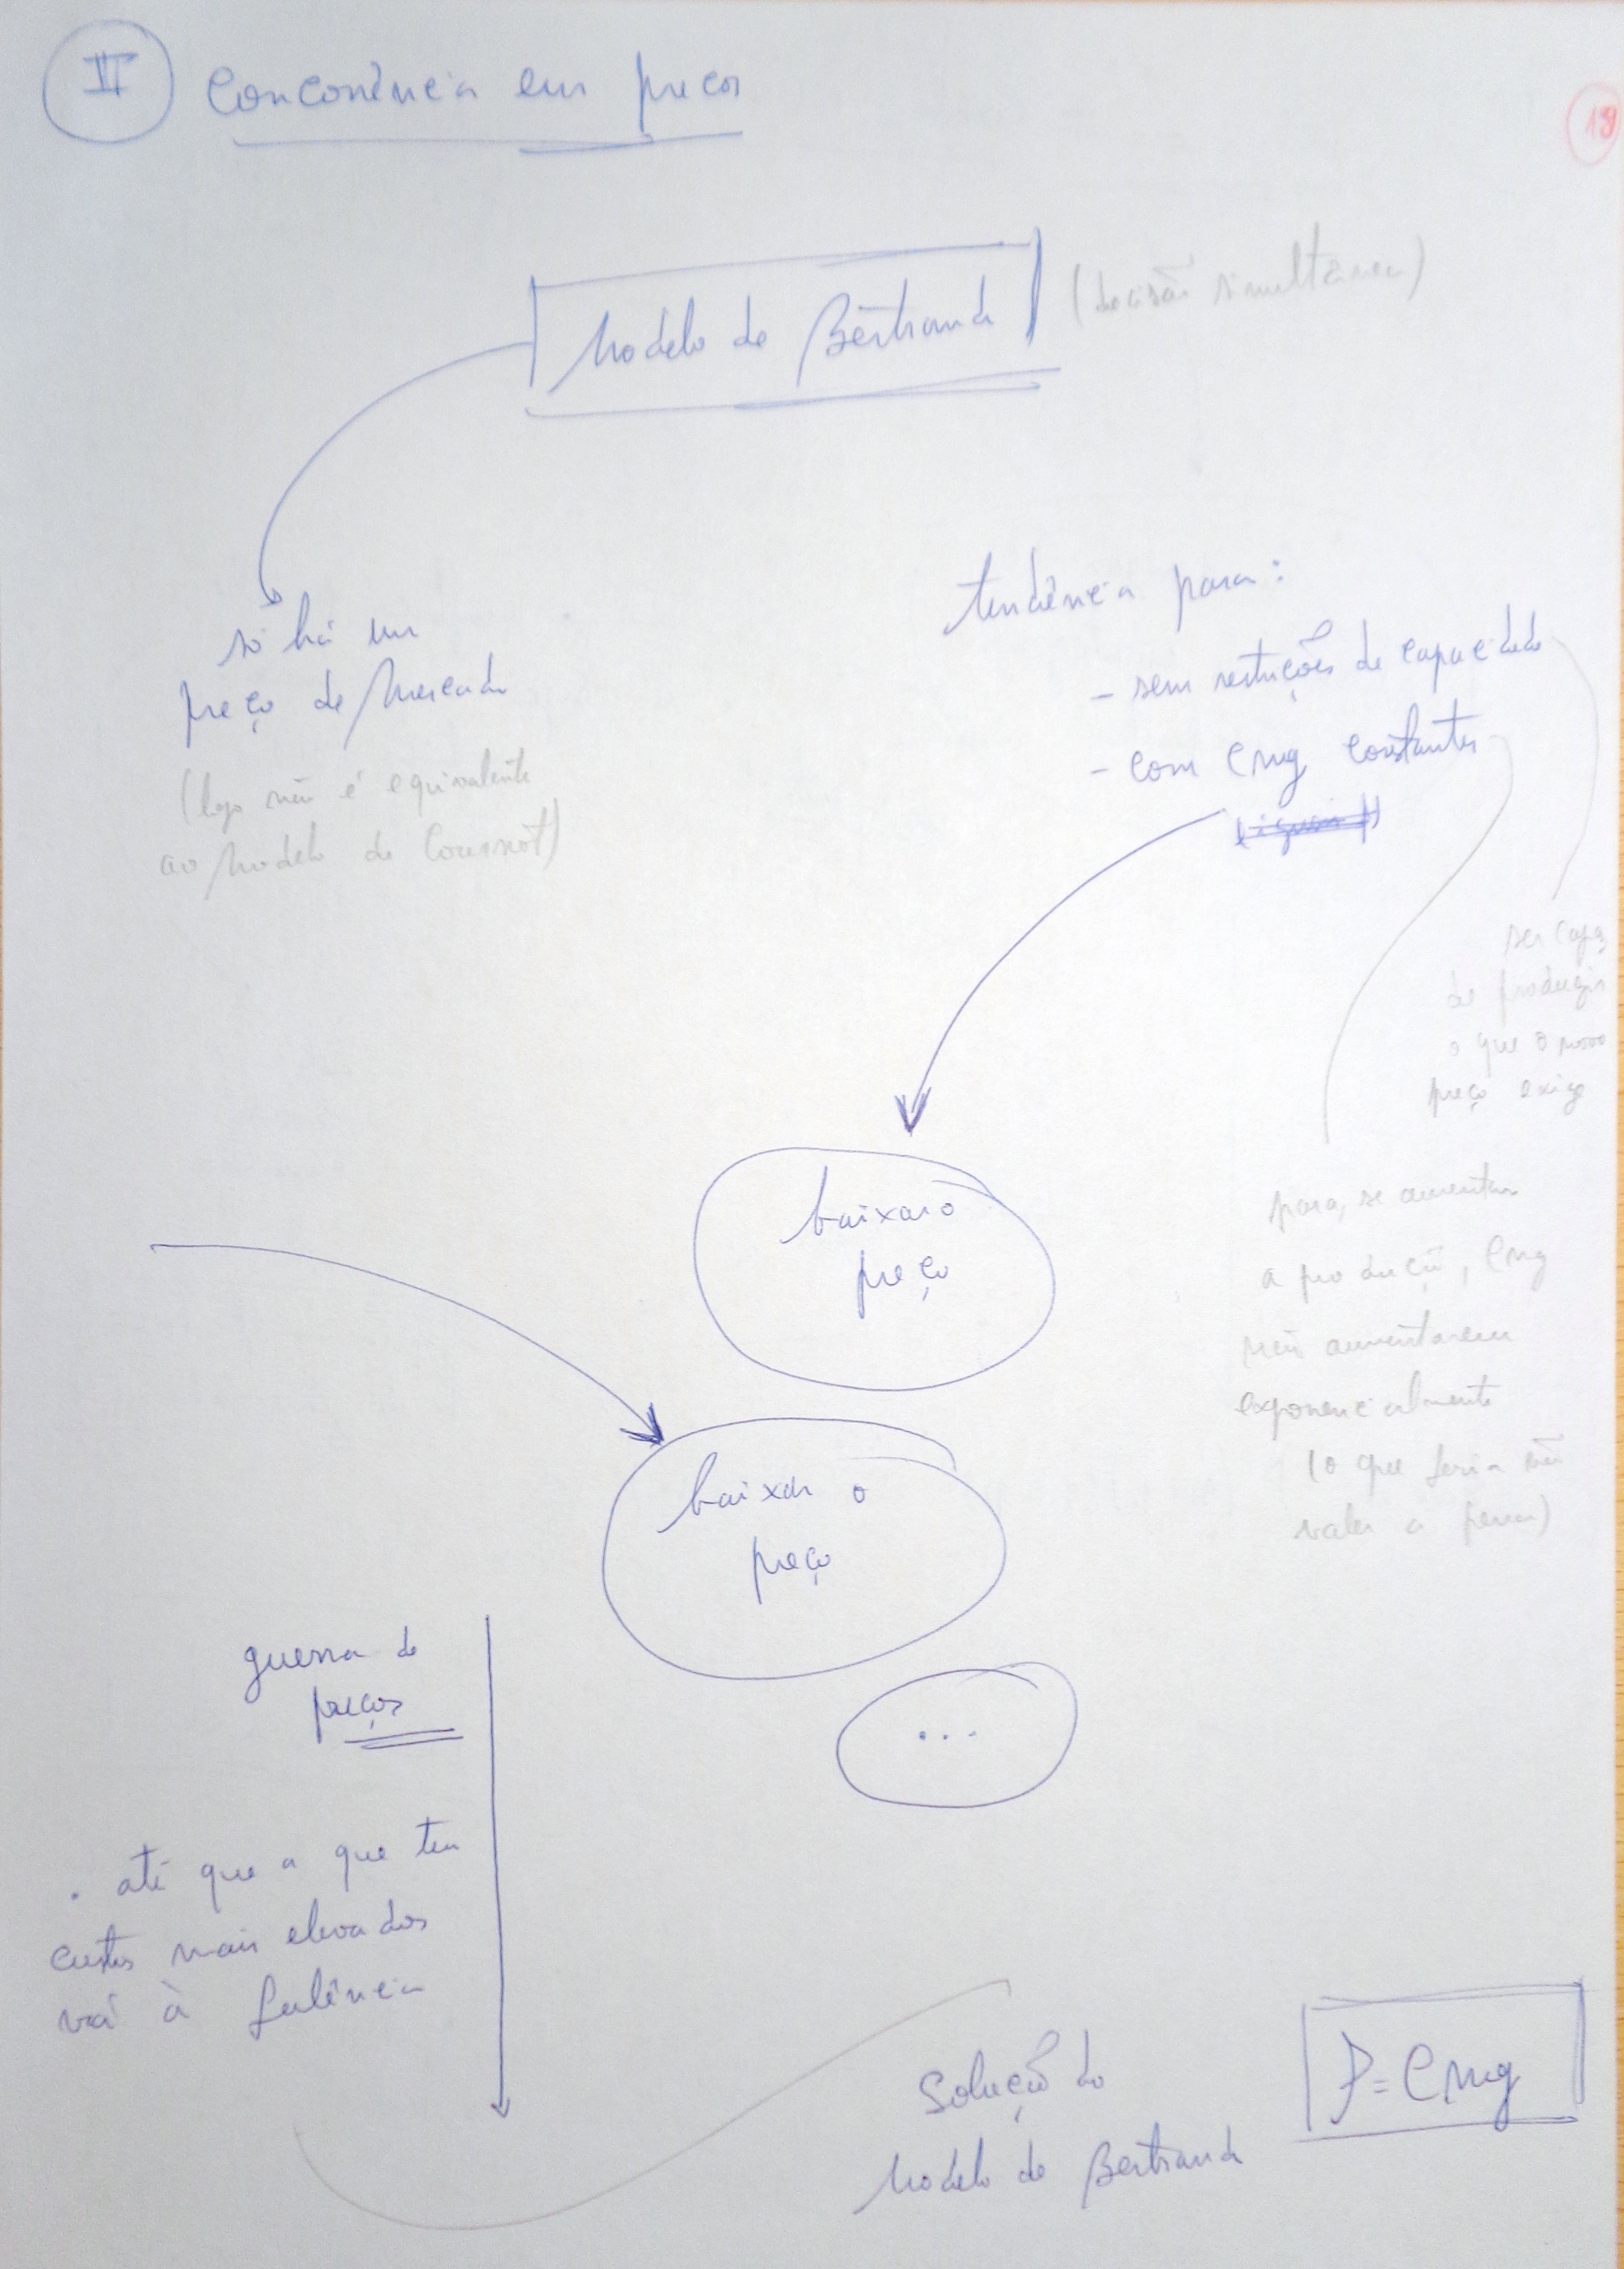 II Concorrência em preços
19
Modelo de Bertrand (decisão simultânea)
só há um
preço de mercado
(logo não é equivalente
ao modelo de Cournot)
tendência para:
- sem restrições de capacidade
- com Cmg constantes
ser capaz
de produzir
o que o novo
preço exige
para, se aumentar
a produção, Cmg
não aumentarem
exponencialmente
(o que faria não
valer a pena)
baixar o
preço
baixar o
preço
...
guerra de
preços
. até que a que tem
custos mais elevados
vá à falência
Solução do
Modelo de Bertrand
P = Cmg